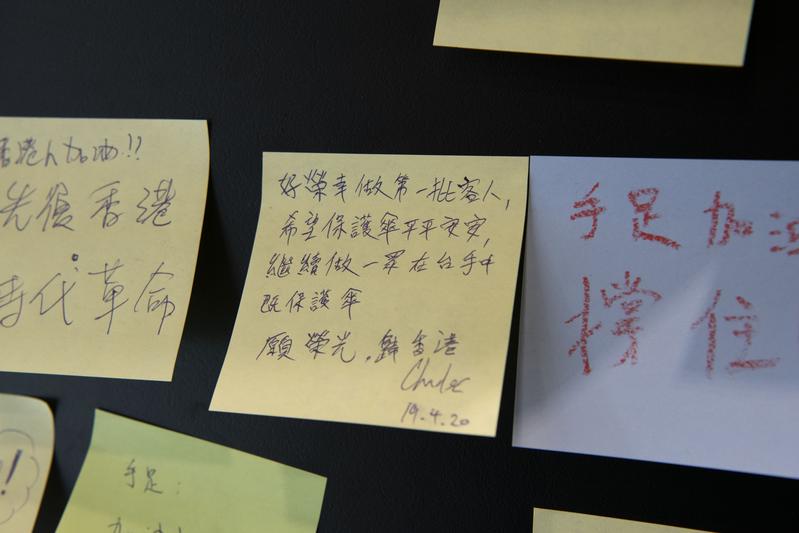 香港人加油!!
光復香港
時代革命
好榮幸做第一批客人,
希望保護傘平平安安,
繼續做一眾在台手足
既保護傘
願榮光歸香港
19.4.20
手足加油
撐住
手足:
加油!